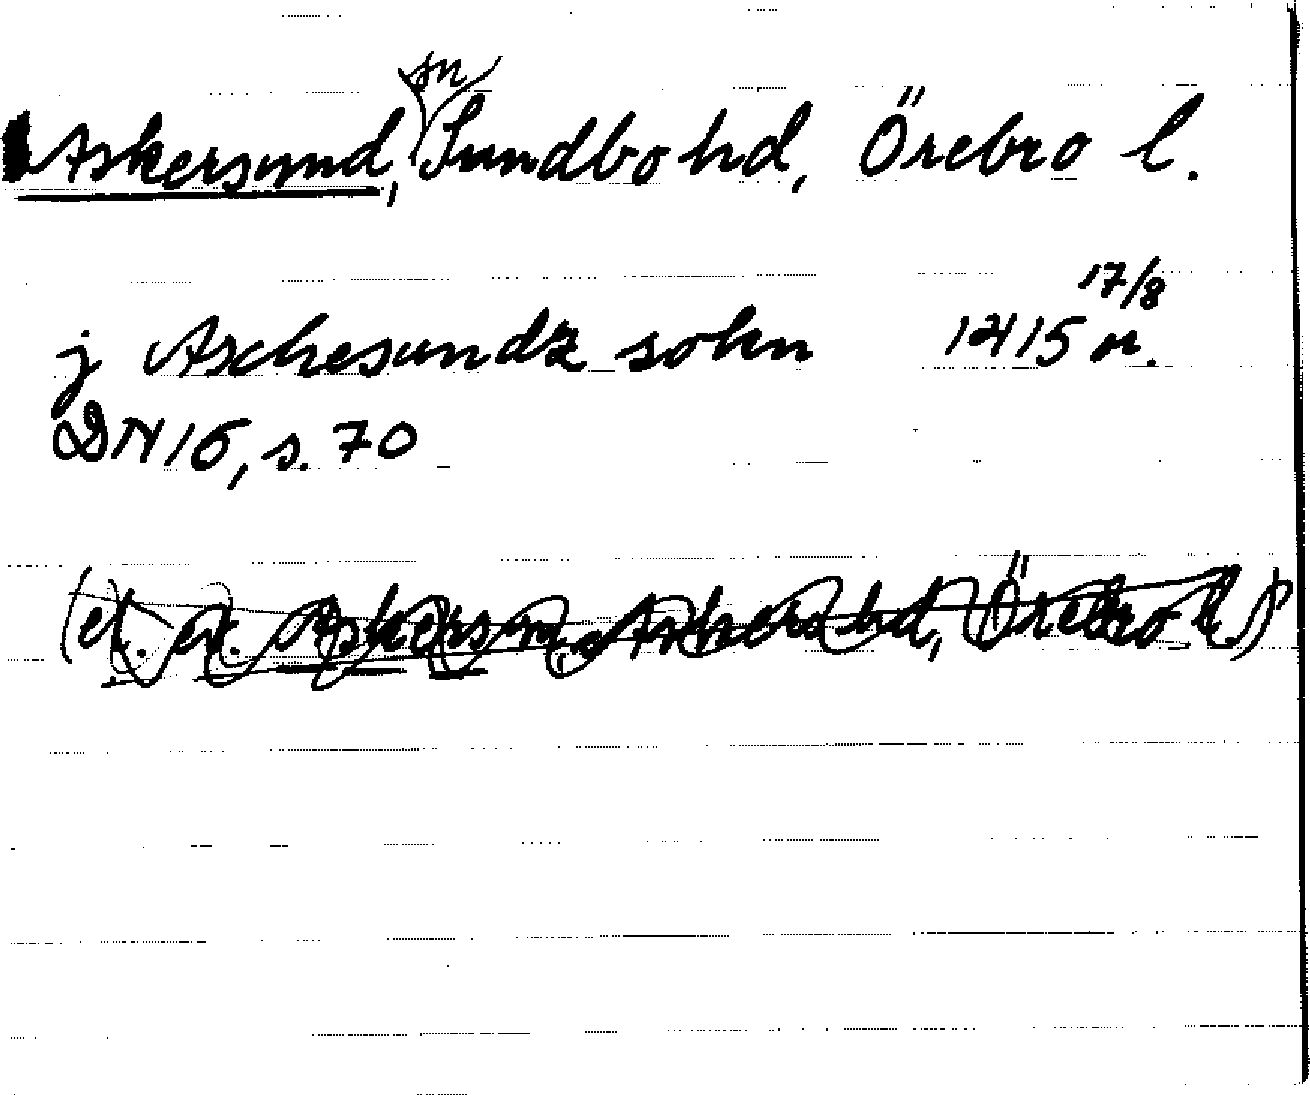 Askersund, sn Sundbo hd, Örebro l.
j Aschesundz sokn 1415 17/8 or.
DN 16, s. 70
(el. ev. Askers sn, Askers hd, Örebro l.)